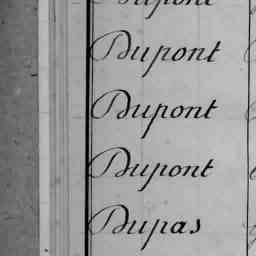 Dupont
Dupont
Dupont
Dupont
Dupas